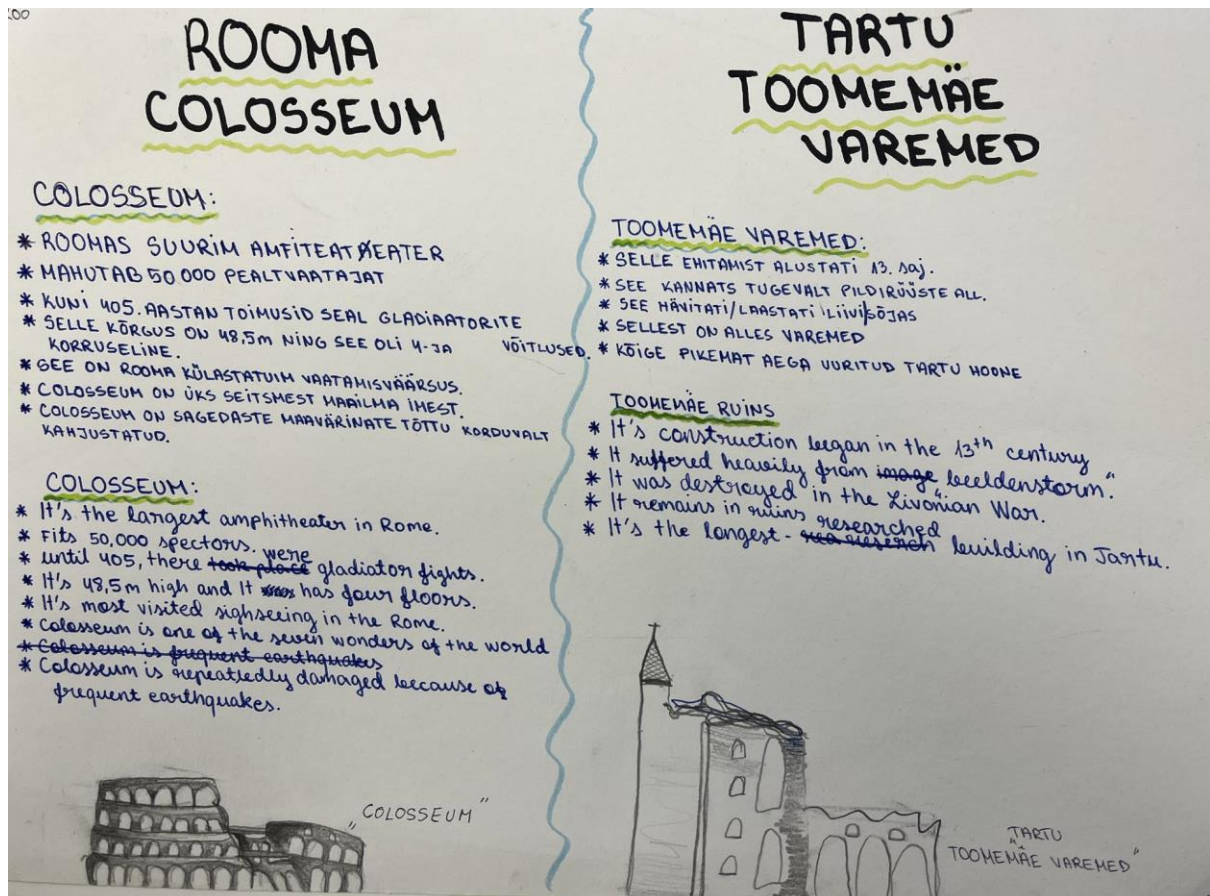 ROOMA
COLOSSEUM
COLOSSEUM:
* ROOMAS SUURIM AMFITEATEATER
* MAHUTAB 50 000 PEALTVAATAJAT
* KUNI 405. AASTAN TOIMUSID SEAL GLADIAATORITE
VÕITLUSED.
* SELLE KÕRGUS ON 48,5m NING SEE OLI 4-JA
KORRUSELINE.
* SEE ON ROOMA KÜLASTATUIM VAATAMISVÄÄRSUS.
* COLOSSEUM ON ÜKS SEITSMEST MAAILMA IMEST.
* COLOSSEUM ON SAGEDASTE MAAVÄRINATE TÕTTU KORDUVALT
KAHJUSTATUD.
COLOSSEUM:
* It's the largest amphitheater in Rome.
* Fits 50,000 spectors.
* until 405, there were took place gladiator fights.
* It's 48,5m high and It has four floors.
* It's most visited sighseeing in the Rome.
* Colosseum is one of the seven wonders of the world
* Colosseum is frequent earthquakes
* Colosseum is repeatledly damaged because of
frequent earthquakes.
"COLOSSEUM"
TARTU
TOOMEMÄE
VAREMED
TOOMEMÄE VAREMED:
* SELLE EHITAMIST ALUSTATI 13. saj.
* SEE KANNATS TUGEVALT PILDIRÜÜSTE ALL.
* SEE HÄVITATI/LAASTATI LIIVI SÕJAS
* SELLEST ON ALLES VAREMED
* KÕIGE PIKEMAT AEGA UURITUD TARTU HOONE
TOOMEMÄE RUINS
* It's construction began in the 13th century
* It suffered heavily from image beeldenstorm."
* It was destroyed in the Livonian War.
* It remains in ruins
* It's the longest- researched building in Tartu.
TARTU
"TOOMEMÄE VAREMED"